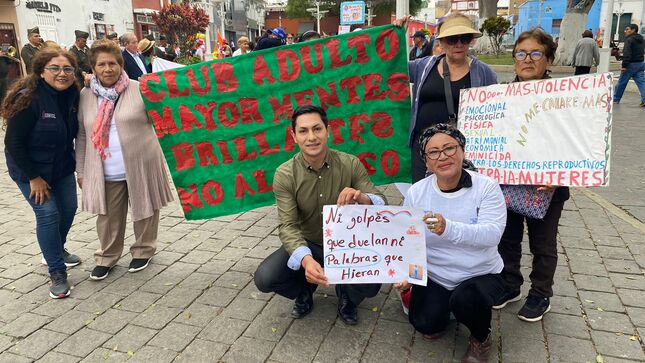 CLUB ADULTO
MAYOR MENTES
BRILLANTES
NO AL
NO MAS VIOLENCIA
EMOCIONAL
PSICOLOGICA
FISICA
SEXUAL
FEMINICIDA
LOS DERECHOS REPRODUCTIVOS
LA MUJERES
NO ME CALLARE MAS
Ni golpes
que duelan ni
Palabras que
Hieran